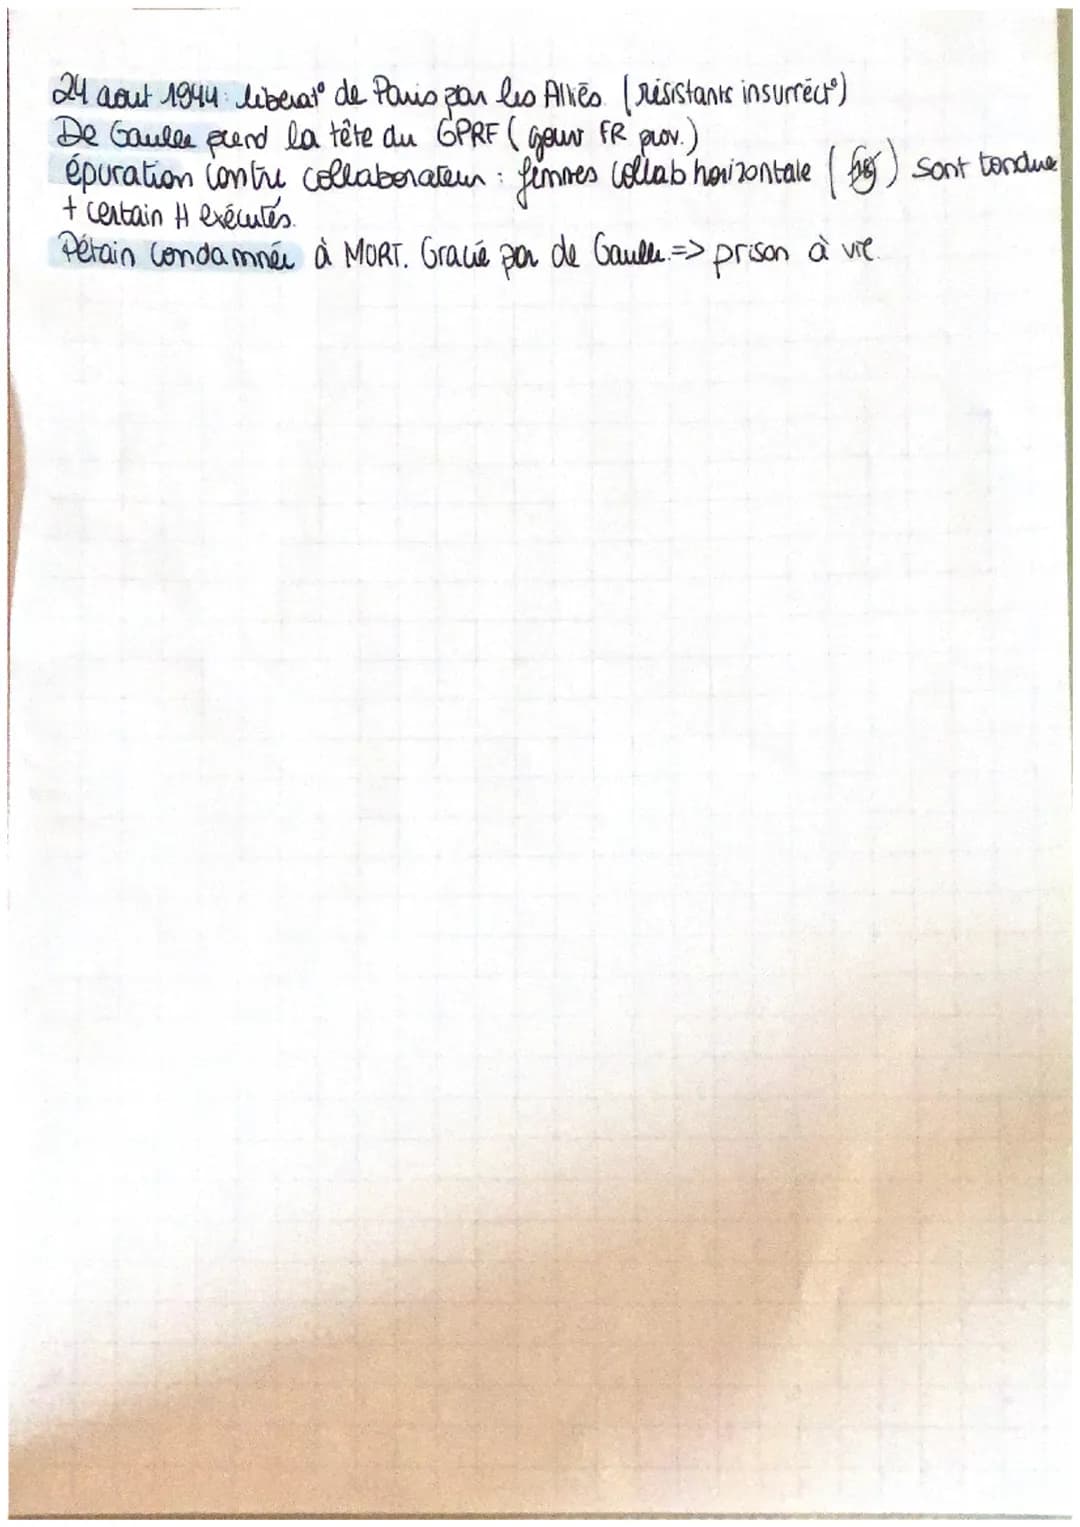 24 aout 1944: liberat° de Paris par les Alliés. (résistants insurrect°)
De Gaulle prend la tête du GPRF (gouv FR prov.)
épuration contre collaborateur : femmes collab horizontale ( ) sont tondue
+ certain H exécutés.
Pétain condamnée à MORT. Gracié par de Gaulle. => prison à vie.